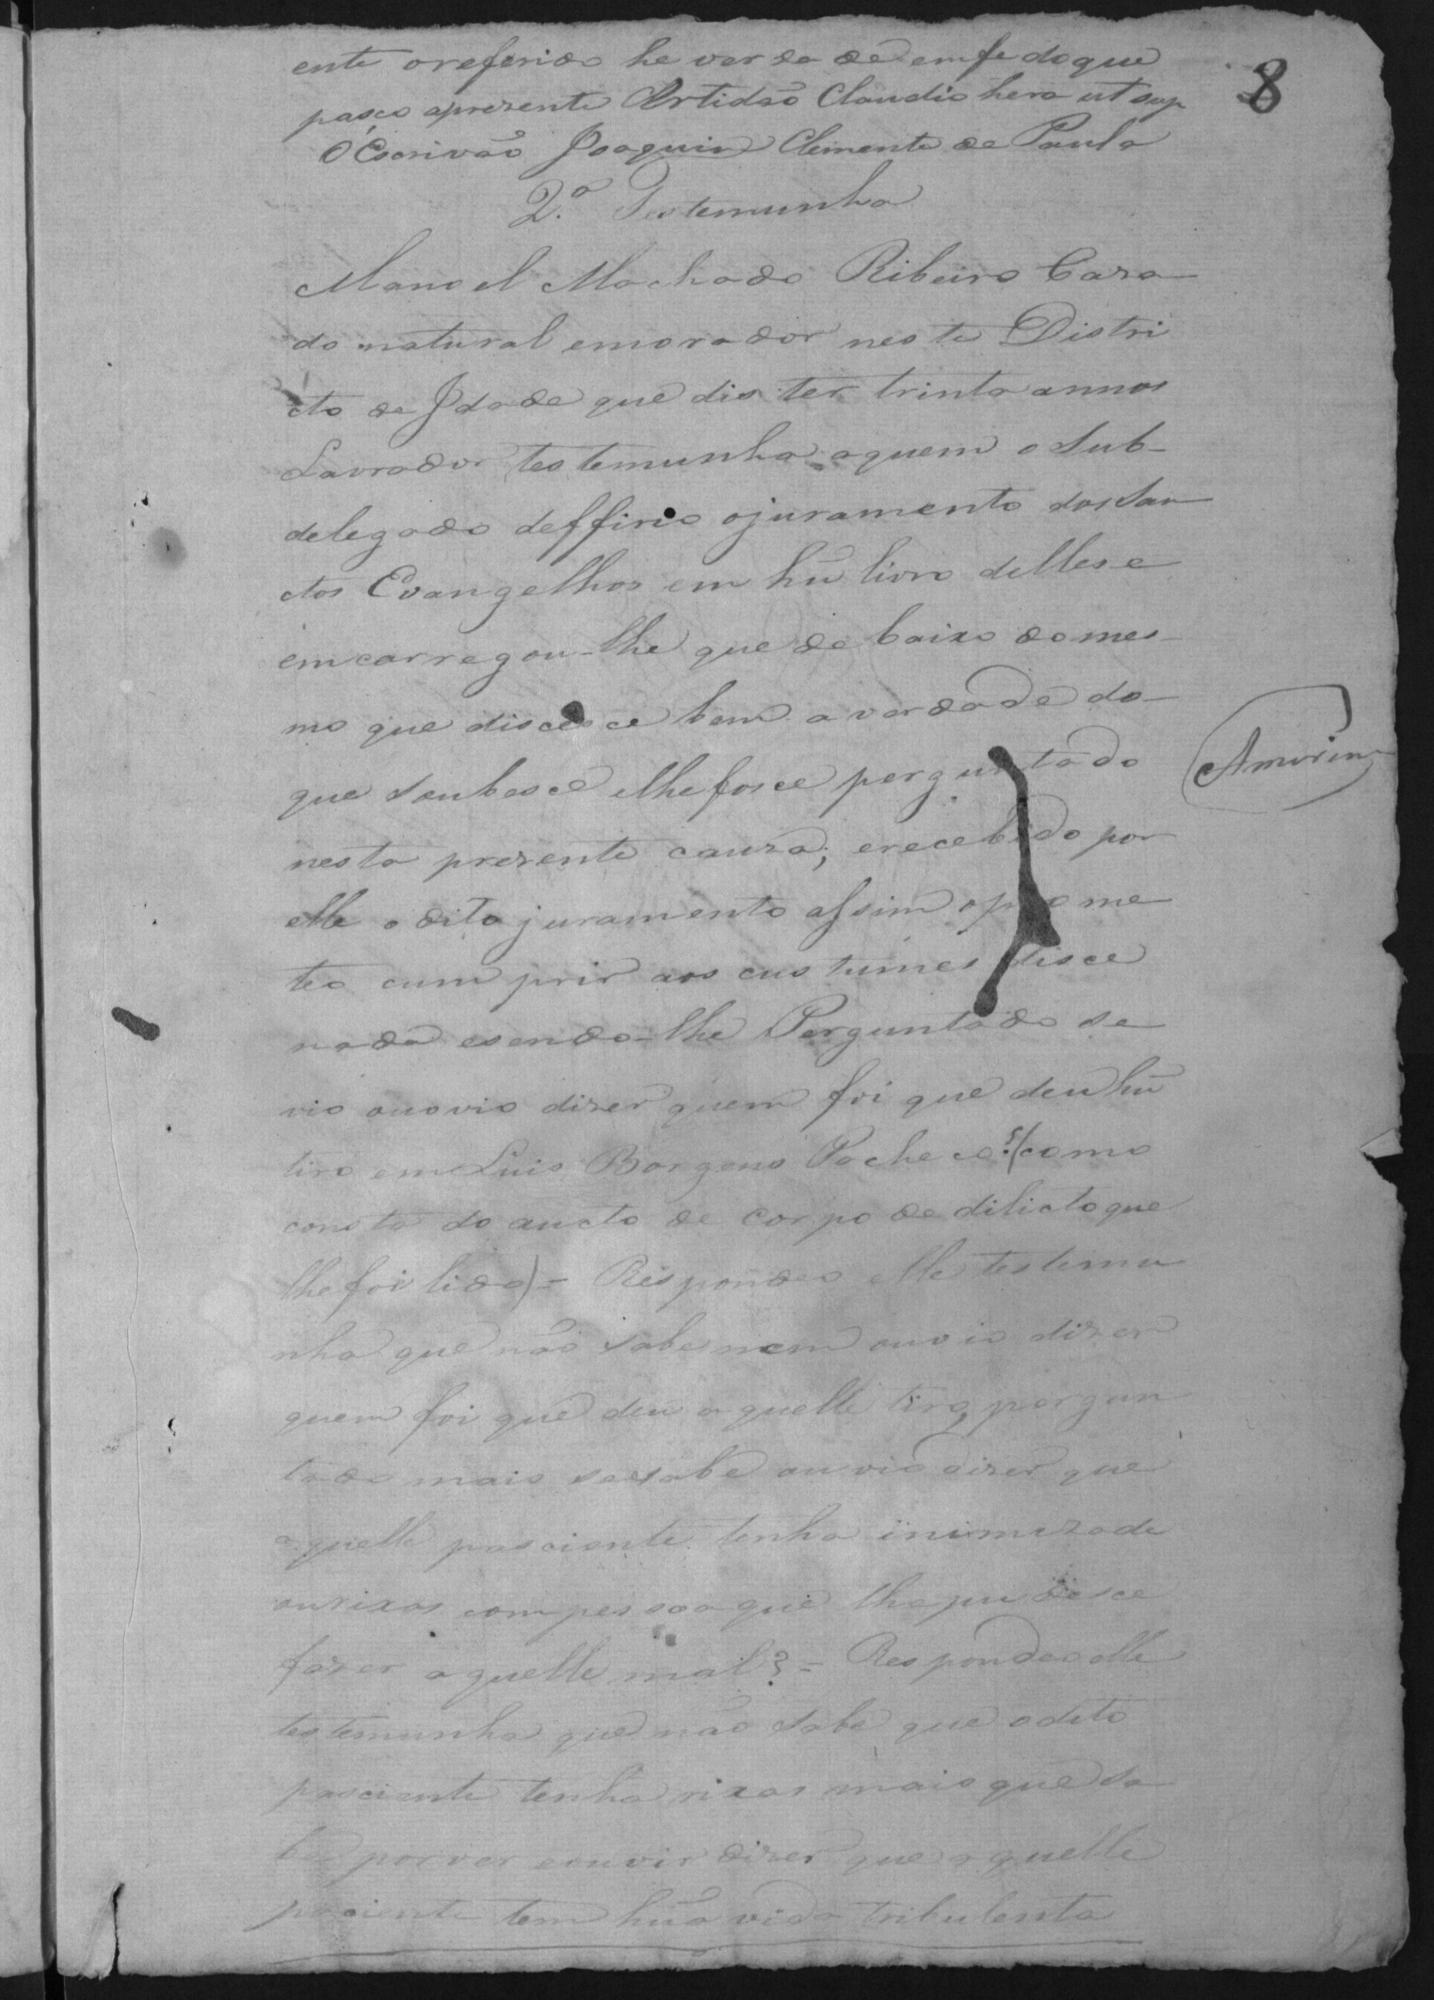 8
ente o referido he verdade em fe do que
pasço aprezente Certidão Claudio hera ut sup
O Escrivão Joaquim Clemente de Paula
2.ª Testemunha
Manoel Machado Ribeiro Caza-
do natural emorador neste Distri
cto de Idade que dis ter trinta annos
Lavrador testemunha aquem o Sub-
delegado deffirio ojuramento dos San
ctos Evangelhos em hũ livro delles e
emcarregou-lhe que debaixo do mes-
mo que discesce bem averdade do-
Amorim
que soubesce elhefosce perguntado
nesta prezente cauza; erecebido por
elle o dito juramento assim o prome
teo cumprir aos custumes disce
nada esendo-lhe Perguntado se
vio ouovio dizer quem foi que deu hũ
tiro em Luis Borgens Pacheco?(como
consta do aucto de corpo de dilicto que
lhe foi lido)= Respondeo elle testemu
nha que não sabe nem ouvio dizer
quem foi que deu aquelle tiro, pergun
tado mais se sabe ouvio dizer que
aquelle pasciente tenha inimizade
ourixas compessoa que lhe pudesce
fazer aquelle mal?= Respondeo elle
testemunha que não sabe que o dito
pasciente tenha rixas mais que sa
be por ver eouvir dizer que aquelle
paciente tem hũa vida tribulenta